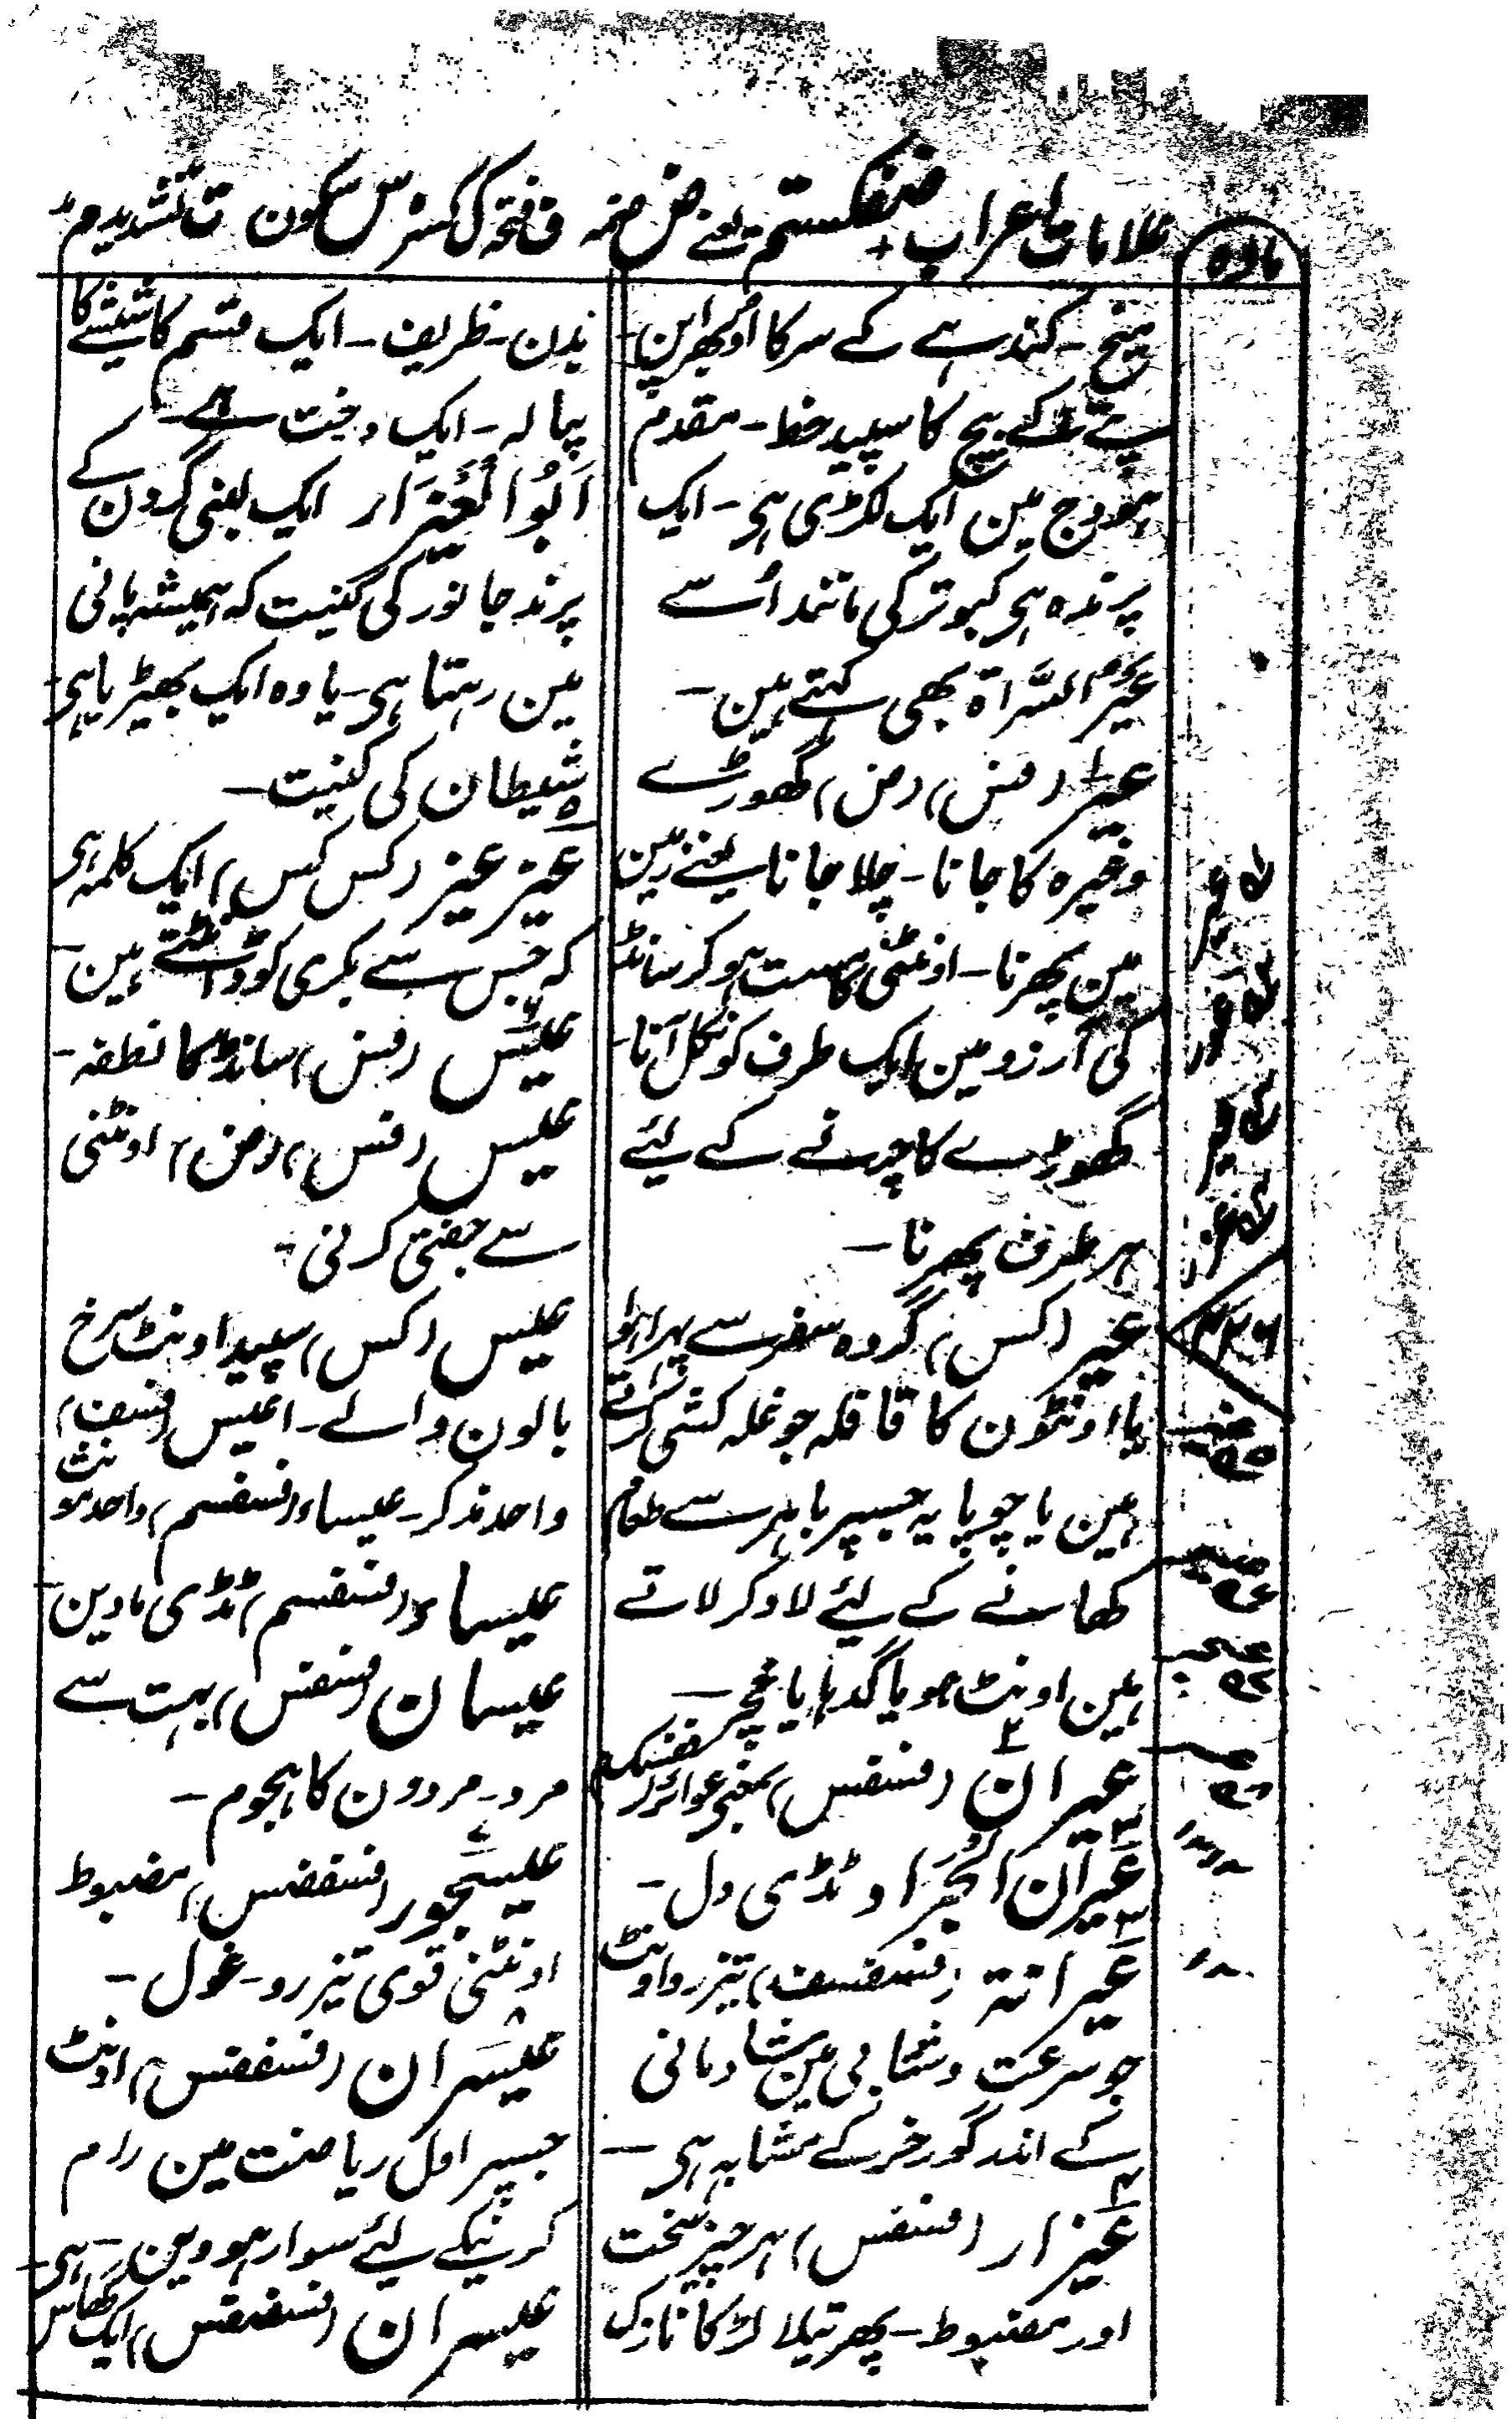 علامات اعراب + ضفکستم یعنے ض ضمہ ف فتحہ ک کسرہ س سکون ت تشدید م مد
مادہ
میخ - کندہے کے سر کا اُوبھراپن -
پتے کے بیچ کا سپید خط - مقدم
ہودج مین ایک لکڑی ہی - ایک
پرندہ ہی کبوتر کی مانند اُسے
عَیرُ السَّراۃ بھی کہتے ہین -
عیر (فس) (ض) گھوڑے
وغیرہ کا جانا - چلا جانا یعنے زمین
مین پھرنا - اونٹنی کا مست ہو کر سانڈ
کی آرزو مین ایک طرف کو نکل آنا -
گھوڑے کا چرنے کے لیئے
ہر طرف پھرنا -
عیر (کس) گروہ سفر سے پہرا ہوا
یا اونٹون کا قافلہ جو غلہ کشی کرتے
ہین یا چوپایہ جسپر باہر سے طعام
کھانے کے لیئے لاد کر لاتے
ہین اونٹ ہو یا گدہا یا خچر -
عیران (فسفس) بمعنی عوائر
عَیران الجَرَاد ٹڈی دل -
عیرانۃ (فسفسف) تیز رو اونٹ
جو سرعت و شتابی مین شادمانی
کے اندر گورخر کے مشابہ ہی -
عیزار (فسفس) ہر چیز سخت
اور مضبوط - پھرتیلا لڑکا نازک
بدن - ظریف - ایک قسم کا شیشے کا
پیالہ - ایک درخت ہے -
اَبُو العَیزَار ایک لمبی گردن کے
پرند جانور کی کنیت کہ ہمیشہ پانی
مین رہتا ہی - یا وہ ایک بھیڑیا ہی -
شیطان کی کنیت -
عیز عیز (کس کس) ایک کلمہ ہی
کہ جس سے بکری کو ڈانٹتے ہین -
عیس (فس) سانڈ کا نطفہ -
عیس (فس) (ض) اونٹنی
سے جفتی کرنی -
عیس (کس) سپید اونٹ سرخ
بالون والے - اعیس (فسف)
واحد مذکر - عیساء (فسفسم) واحد مونث
عیساء (فسفسم) ٹڈی مادین -
عیسان (فسفس) بہت سے
مرد - مردون کا ہجوم -
عیسجور (فسففس) مضبوط
اونٹنی قوی تیز رو - غول -
عیسران (فسففس) اونٹ
جسپر اول ریاضت مین رام
کرنیکے لیئے سوار ہووین -
عیسران (فسضفس) ایک گھاس ہی -